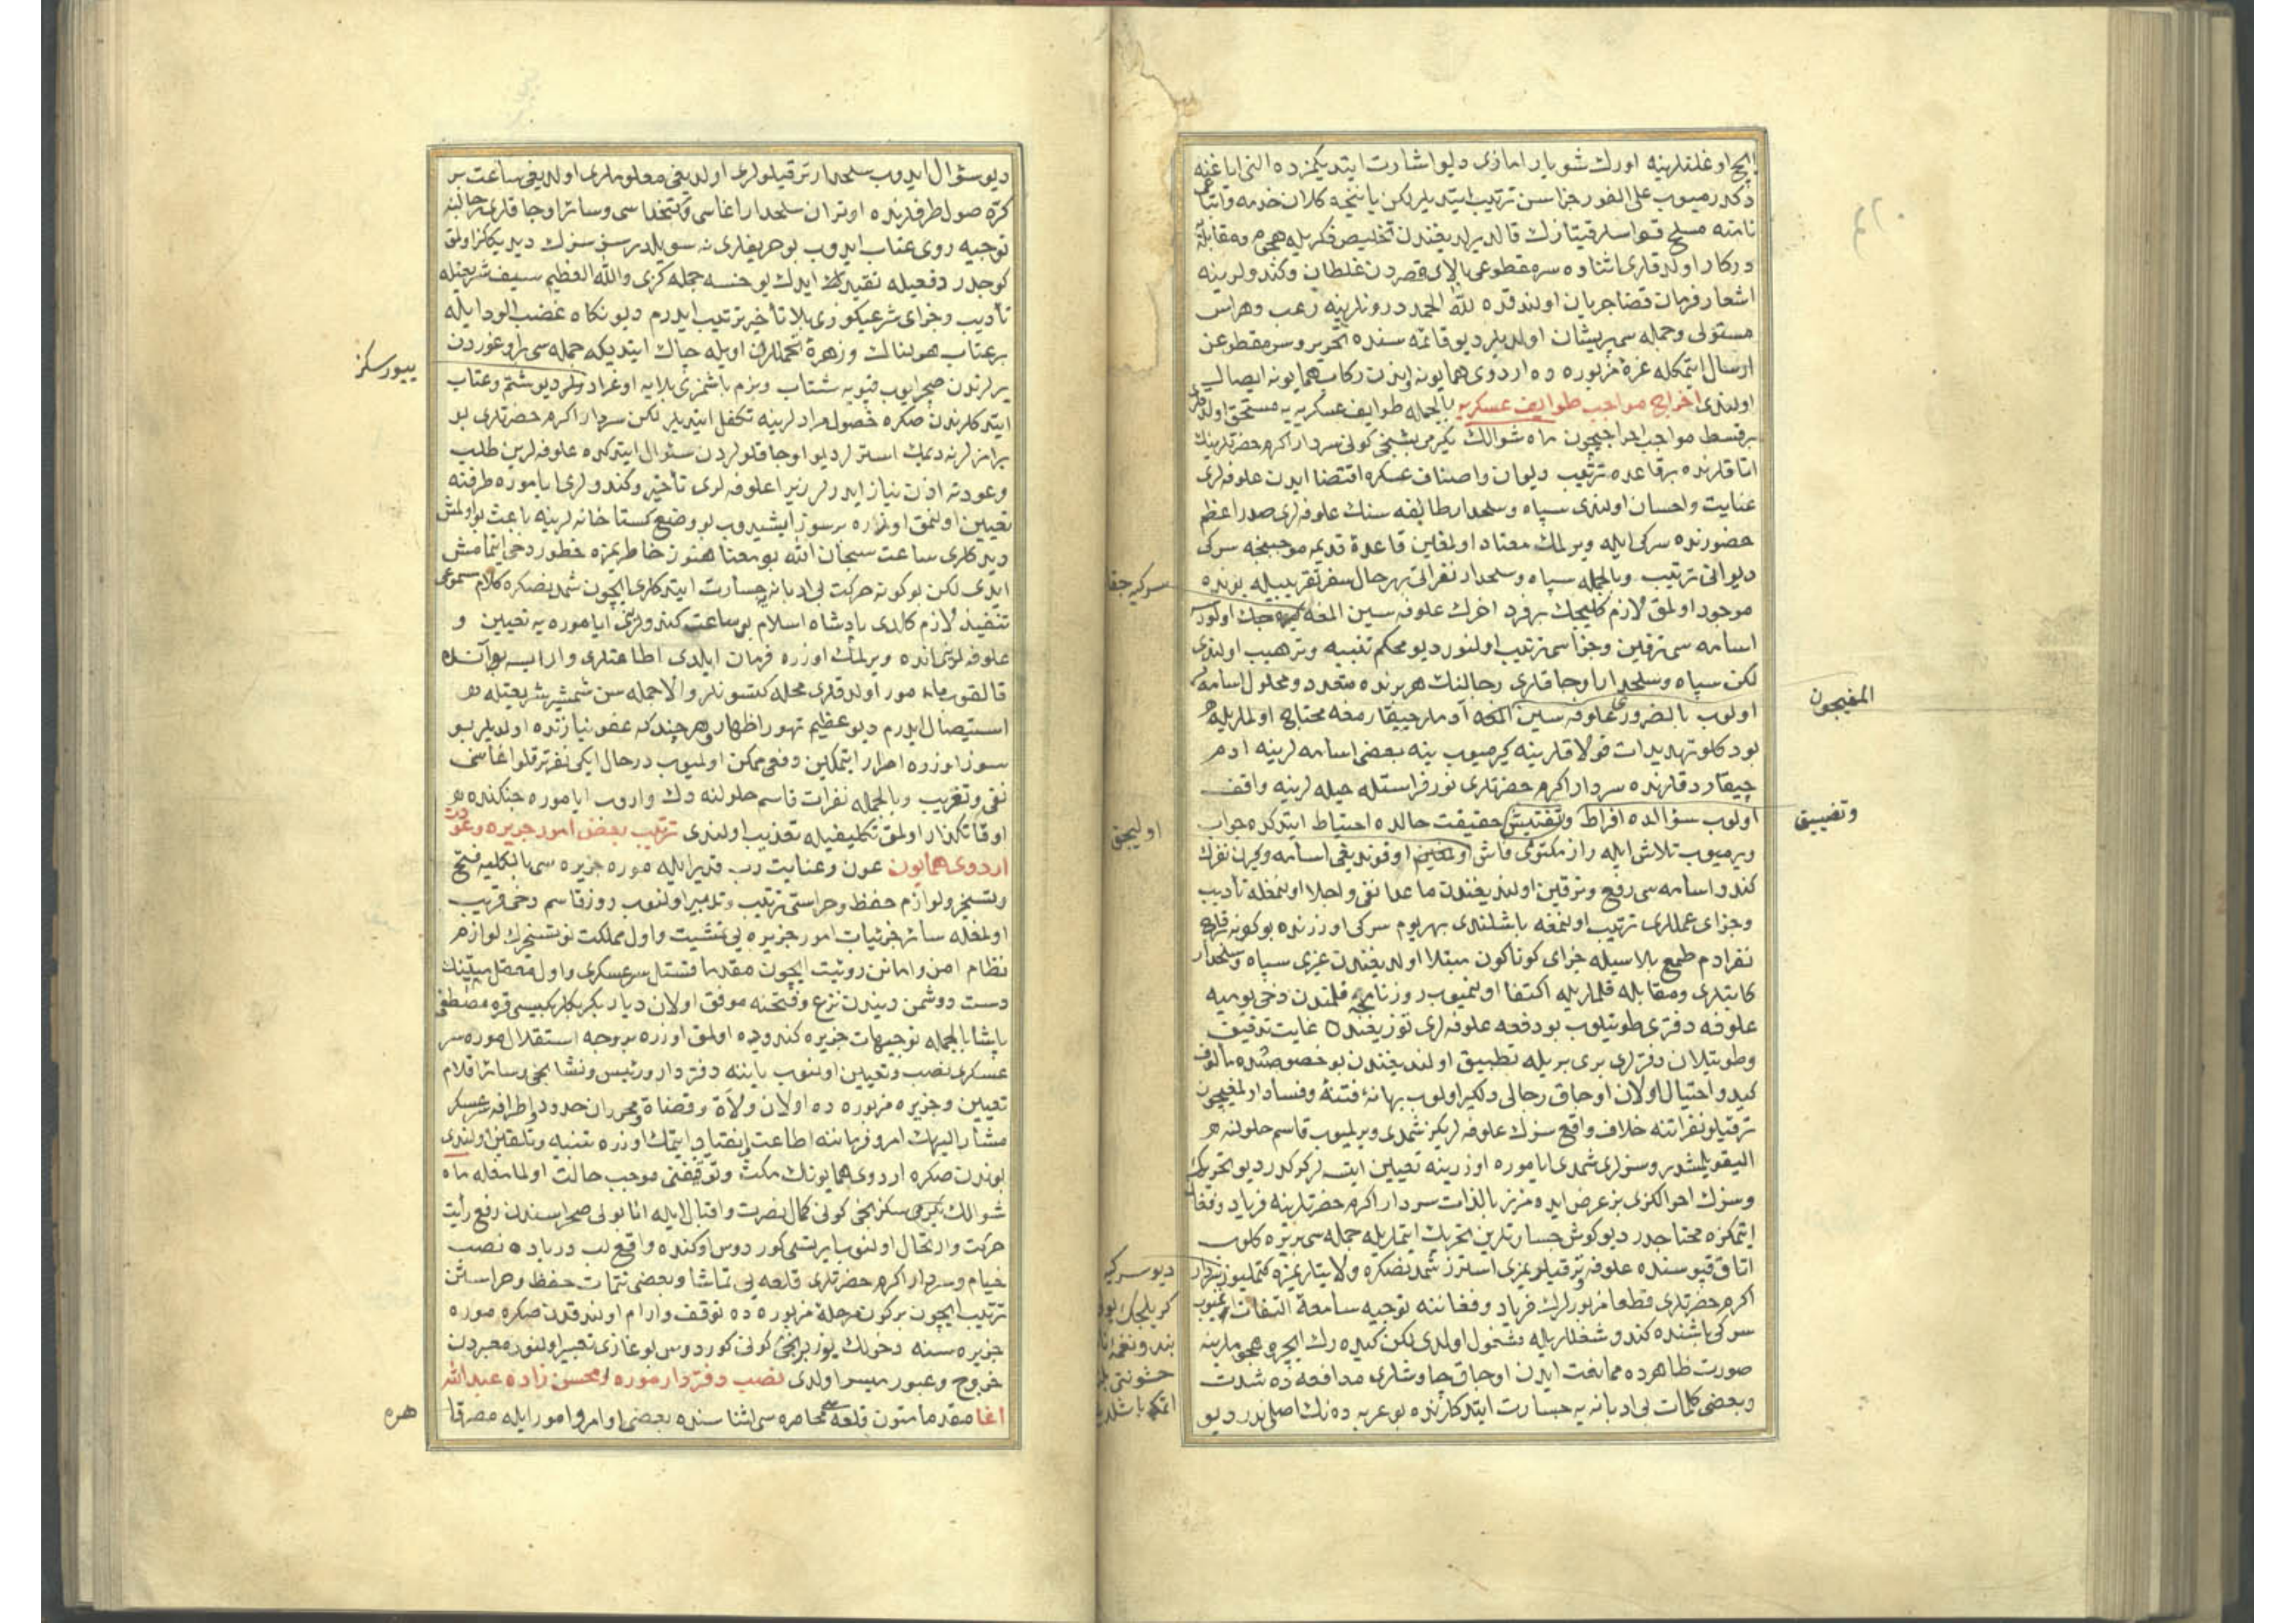 ایچ اوغلانلرینه اورك شو یارامازی دیو اشارت ایتدیكمزده النی ایاغنه
دكدرمیوب علی الفور جزاسن ترتیب ایتدیلر لكن یاننجه كلان خدمه و اتباعی
مسلح قواسلر قیتازك قالدیرلدیغندن تخلیص فكریله هجوم و مقابله
دركار اولدقلری اثناده سر مقطوعی بالای قصردن غلطان و كندولرینه
اشعار فرمان قضا جریان اولندقده لله الحمد درونلرینه رعب و هراس
مستولی و جمله سی پریشان اولدیلر دیو قائمه سنده تحریر و سر مقطوعن
ارسال ایتمكله غره مزبوره ده اردوی همایونه واندن ركاب همایونه ایصال
اولندی اخراج مواجب طوایف عسكریه بالجمله طوایف عسكریه یه مستحق اولدقلری
برقسط مواجب اخراجیچون ماه شوالك یكرمی بشنجی كونی سردار اكرم حضرتلرینك
اتاقلرنده برقاعده ترتیب دیوان و اصناف عسكره اقتضا ایدن علوفه لری
عنایت و احسان اولندی سپاه و سلحدار طایفه سنك علوفه لری صدر اعظم
حضورنده سركی ایله ویرلمك معتاد اولمغین قاعده قدیمه موجبنجه سركی
دیوانی ترتیب و بالجمله سپاه و سلحدار نفراتی بهرحال سفر تقریبیله بونده
موجود اولمق لازم كلیجك برفرد اخرك علوفه سین المغه جك اولورسه
اسامه سی ترقین و جزاسی ترتیب اولنور دیو محكم تنبیه و ترهیب اولندی
لكن سپاه و سلحدار اوجاقلری رجالنك هر برنده متعدد و محلول اسامه لر
اولوب بالضروری علوفه سین المغه آدملر چیقارمغه محتاج اولملریله
بودكلو تهدیدات قولاقلرینه كیرمیوب ینه بعضی اسامه لرینه ادم
چیقاردقلرنده سردار اكرم حضرتلری نور فراستله حیله لرینه واقف
اولوب سؤالده افراط و تفتیش حقیقت حالده احتیاط ایتدكده جواب
ویرمیوب تلاش ایله راز مكتومی فاش اولمغین اوقوندیغی اسامه و كیرن نفرك
كندو اسامه سی رفع و ترقین اولندیغندن ماعدا نفی و اجلا اولنمغله تأدیب
و جزای عمللری ترتیب اولنمغه باشلندی بهر یوم سركی اوزرنده بوكونه قرق
نفر ادم طمع بلاسیله جزای كوناكون مبتلا اولدیغندن غیری سپاه و سلحدار
كاتبلری و مقابله قلملریله اكتفا اولنمیوب روزنامچه قلمندن دخی یومیه
علوفه دفتری طوتیلوب بو دفعه علوفه لری توزیعنده غایت تدقیق
و طوتیلان دفترلری بری بریله تطبیق اولندیغندن بو خصوصده مألوف
كید و احتیال اولان اوجاق رجالی دلكیر اولوب بهانه فتنه و فساد اولمغیچون
ترقیلو نفراتنه خلاف واقع سزك علوفه لریكز شمدی ویرلمیوب قاسم حلولنه
الیقویلمشدر و سزلری شمدی ایاموره اوزرینه تعیین ایتسه لر كركدر دیو تحریك
و سزك احوالكزی بز عرض ایده مزز بالذات سردار اكرم حضرتلرینه فریاد و فغان
ایتمكزه محتاجدر دیو كوش جسارتلرین تحریك ایتملریله جمله سی بریره كلوب
اتاق قپوسنده علوفه و ترقیلریمزی استرز شمدنصكره ولایتلریمزه كتملیوز
اكرم حضرتلری قطعا مزبورلرك فریاد و فغاننه توجیه سامعه التفات ایتمیوب
سركی باشنده كندو شغللریله مشغول اولدی لكن كیده رك ایچرو هجوملرینه
صورت ظاهرده ممانعت ایدن اوجاق چاوشلری مدافعه ده شدت
و بعضی كلمات بی ادبانه یه جسارت ایتدكلرنده بو عربده نك اصلی ندر دیو
المغیچون
و تضییق
اولیجق
دیو سؤال ایدوب سلحدار ترقیلولری اولدیغی معلوملری اولدیغی ساعت بر
كره صول طرفلرنده اوتران سلحدار اغاسی و كتخداسی و سائر اوجاقلری رجالنه
توجیه روی عتاب ایدوب بو حریفلری نه سویلدرسز سزك دیدیكلكز اولمق
كوجدر دفعیله تقید ایدك یوخسه جمله كزی والله العظیم سیف شریعتله
تأدیب و جزای شرعیكوزی بلا تأخیر ترتیب ایدرم دیو نكاه غضب الود ایله
بر عتاب هولناك و زهره تحمللرن اویله چاك ایتدیكه جمله سی
یرلرندن صچرایوب قپویه شتاب و بزم باشمزی بلایه اوغرادورلر دیو شتم و عتاب
ایتدكلرندن صكره حصول مرادلرینه تكفل ایتدیلر لكن سردار اكرم حضرتلری
نه دیمك استرلر دیو اوجاقلولردن سؤال ایتدكده علوفه لرین طلب
و عودته اذن نیاز ایدرلر زیرا علوفه لری تأخیر و كندولری ایاموره طرفنه
تعیین اولنمق اوزره بر سوز ایشیدوب بو وضع كستاخانه لرینه باعث بو اولمش
دیدكلری ساعت سبحان الله بو معنا هنوز خاطریمزه خطور دخی ایتمامش
ایدی لكن بوكونه حركت بی ادبانه یه جسارت ایتدكلری ایچون شمدنصكره كلام مسموعی
تنفیذ لازم كلدی پادشاه اسلام بو ساعت كندولری ایاموره یه تعیین و
علوفه لرینی انده ویرلمك اوزره فرمان ایلدی اطاعتلری وار ایسه بو آنده
قالقوب مأمور اولدقلری محله كتسونلر والا جمله سن شمشیر شریعتله
استیصال ایدرم دیو عظیم تهور اظهار و هر چندكه عفو نیازنده اولدیلر بو
سوز اوزره اصرار ایتمكلین دفعی ممكن اولمیوب درحال ایكی نفر ترقلو اغاسنی
نفی و تغریب و بالجمله نفرات قاسم حلولنه دك واروب ایاموره جنكنده
اوقاتكذار اولمق تكلیفیله تعذیب اولندی ترتیب بعض امور جزیره و عودت
اردوی همایون عون و عنایت رب قدیر ایله موره جزیره سی بالكلیه فتح
و تسخیر و لوازم حفظ و حراستی ترتیب و تدبیر اولنوب روز قاسم دخی قریب
اولمغله سائر جزئیات امور جزیره یی تمشیت و اول مملكت نو تسخیرك لوازم
نظام امن و امانن رؤیت ایچون مقدما قشتل سرعسكری و اول معقل متینك
دست دوشمن دیندن نزع و فتحنه موفق اولان دیار بكر بكلربكیسی قره مصطفی
پاشا بالجمله توجیهات جزیره كندویه اولمق اوزره بر وجه استقلال موره سر
عسكری نصب و تعیین اولنوب یاننه دفتردار و رئیس و نشانجی و سائر اقلام
تعیین و جزیره مزبوره ده اولان ولاة و قضاة و محرران حدود و اطراف سرعسكر
مشار الیهك امر و فرماننه اطاعت و انقیاد ایتمك اوزره تنبیه و تلقین اولندی
بوندن صكره اردوی همایونك مكث و توقفنی موجب حالت اولمامغله ماه
شوالك یكرمی سكزنجی كونی كمال نصرت و اقبال ایله انابولی صحراسندن رفع رأیت
حركت و ارتحال اولنوب ایرتسی كوردوس اوكنده واقع لب دریاده نصب
خیام و سردار اكرم حضرتلری قلعه یی تماشا و بعضی تتمات حفظ و حراستن
ترتیب ایچون بركون مرحله مزبوره ده توقف و ارام اولندقدن صكره موره
جزیره سنه دخولك یوز برنجی كونی كوردوس بوغازی تعبیر اولنور معبردن
خروج و عبور میسر اولدی نصب دفتردار موره محسن زاده عبدالله
اغا مقدما متون قلعه سی محاصره سی اثناسنده بعضی اوامر و امور ایله مصرقا
بیورسكز